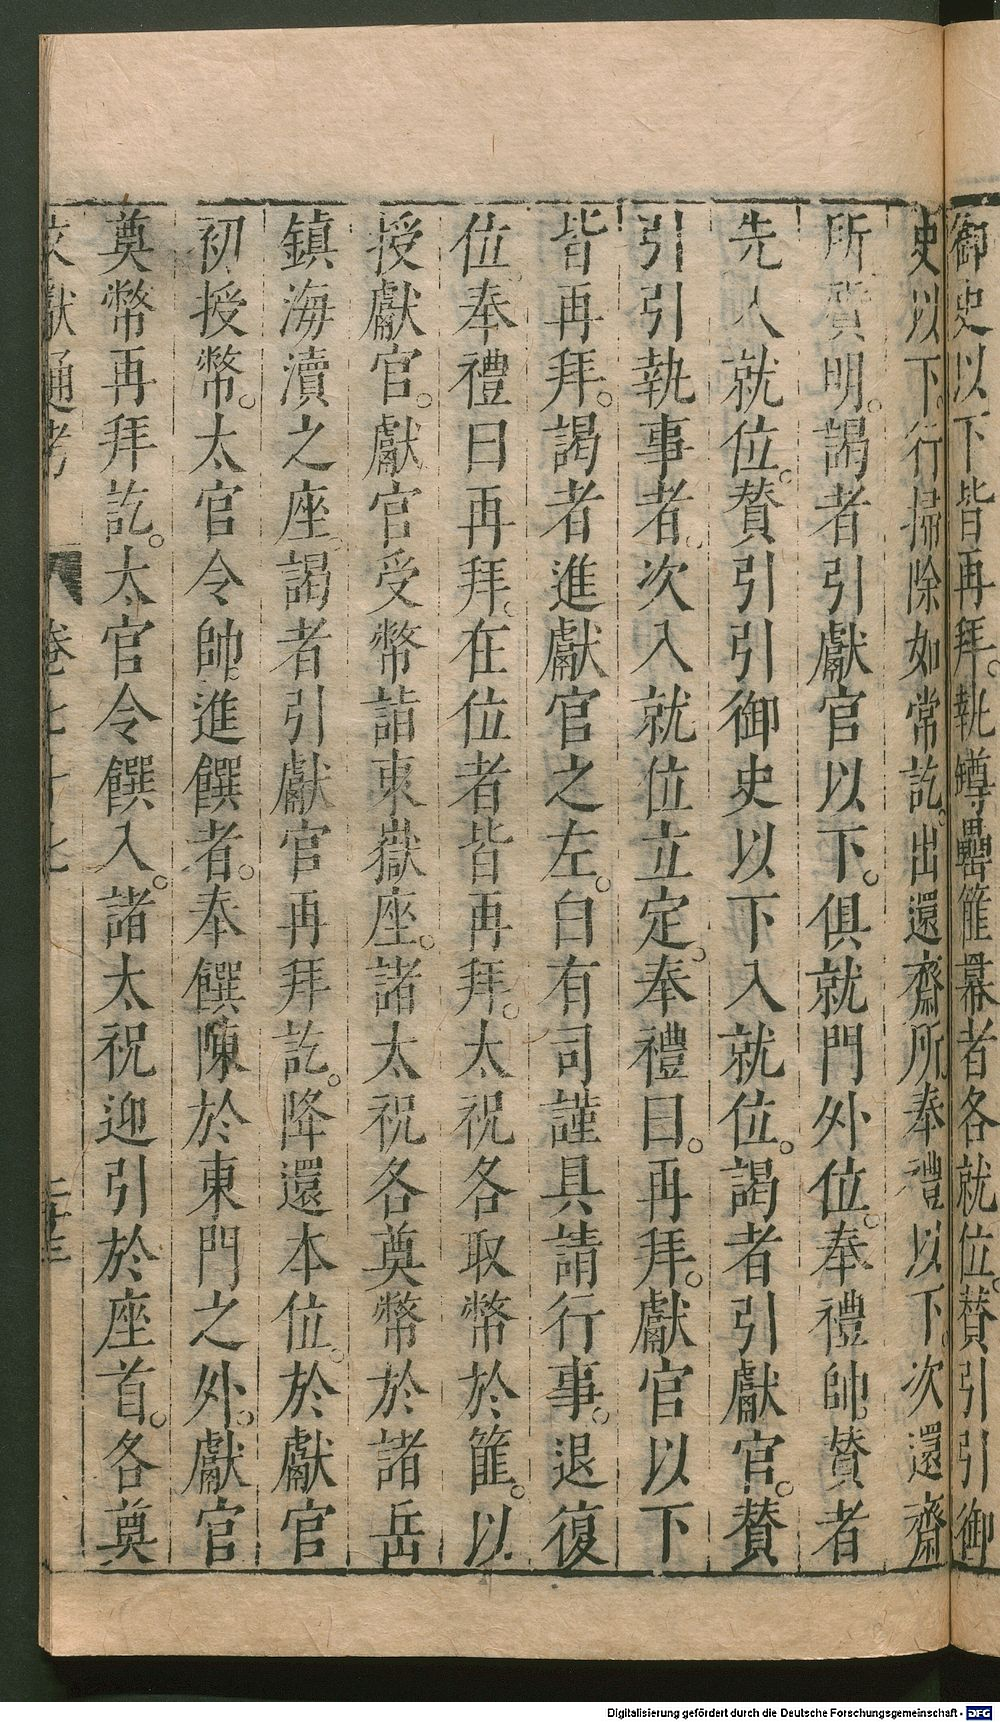 御史以下皆再拜。執罇罍篚冪者各就位。贊引引御
史以下。行掃除如常訖。出還齋所奉禮以下。次還齋
所。質明。謁者引獻官以下。俱就門外位。奉禮帥。贊者
先入就位。贊引引御史以下入就位。謁者引獻官。贊
引引執事者。次入就位立定。奉禮曰。再拜。獻官以下
皆再拜。謁者進獻官之左。白有司謹具請行事。退復
位。奉禮曰再拜。在位者皆再拜。太祝各取幣於篚。以
授獻官。獻官受幣詣東嶽座。諸太祝各奠幣於諸岳
鎮海瀆之座謁者引獻官再拜訖。降還本位。於獻官
初授幣。太官令帥。進饌者。奉饌陳於東門之外。獻官
奠幣再拜訖。太官令饌入。諸太祝迎引於座首。各奠
文獻通考 卷七十七 二十三
Digitalisierung gefördert durch die Deutsche Forschungsgemeinschaft - DFG